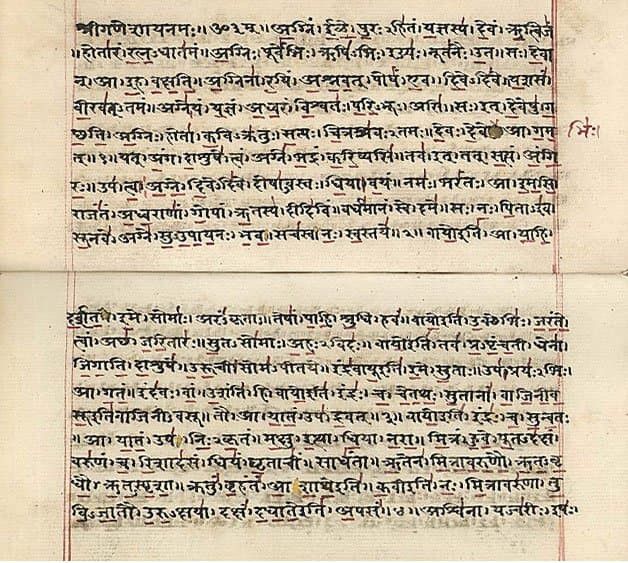 श्रीगणेशायनमः॥ॐ३म्॥ अग्निं ईळे पुरःऽहितं यज्ञस्य देवं ऋत्विजं
॥होतारं रत्नऽधातमं॥ अग्निः पूर्वेभिः ऋषिऽभिः ईड्यः नूतनैः उत॥ सः देवा
न् आ इह वक्षति॥ अग्निना रयिं अश्नवत् पोषं एव दिवेऽदिवे॥ यशसं
वीरवत्ऽतमं॥ अग्ने यं यज्ञं अध्वरं विश्वतः परिऽभूः असि॥ सः इत् देवेषु ग
च्छति॥ अग्निः होता कविऽक्रतुः सत्यः चित्रश्रवःऽतमः॥ देवः देवे आ गम
भिः।
त्॥१॥ यत् अंग दाशुषे त्वं अग्ने भद्रं करिष्यसि॥ तव इत् तत् सत्यं अंगि
रः॥ उप त्वा अग्ने दिवेऽदिवे दोषाऽवस्तः धिया वयं॥ नमः भरंतः आ इमसि॥
राजंतं अध्वराणां गोपां ऋतस्य दीदिविं॥ वर्धमानं स्वे दमे॥ सः नः पिताऽइव
सूनवे अग्ने सुऽउपायनः भव॥ सचस्व नः स्वस्तये॥२॥ वायोइति आ याहि
दर्शत इमे सोमाः अरंऽकृताः॥ तेषां पाहि श्रुधि हवं॥ वायोइति उक्थेभिः जरंते
त्वां अच्छ जरितारः॥ सुतऽसोमाः अहःऽविदः॥ वायोइति तव प्रऽपृंचती धेना
जिगाति दाशुषे॥ उरूची सोमऽपीतये॥ इंद्रवायूइति इमे सुताः॥ उप प्रयःऽभिः
आ गतं॥ इंदवः वां उशंति हि॥ वायोइति इंद्रः च चेतथः सुतानां वाजिनीव
सूइतिवाजिनीऽवसू॥ तौ आ यातं उप द्रवत्॥३॥ वायोइति इंद्रः च सुन्वतः
॥ आ यातं उप निःऽकृतं॥ मक्षु इत्था धिया नरा॥ मित्रं हुवे पूतऽदक्षं
वरुणं च रिशादसं॥ धियं घृताचीं साधंता॥ ऋतेन मित्रावरुणौ ऋतऽवृ
धौ ऋतऽस्पृशा॥ क्रतुं बृहंतं आशाथेइति॥ कवीइति नः मित्रावरुणा तु
विऽजातौ उरुऽक्षया॥ दक्षं दधातेइति अपसं॥४॥ अश्विना यज्वरीः इषः